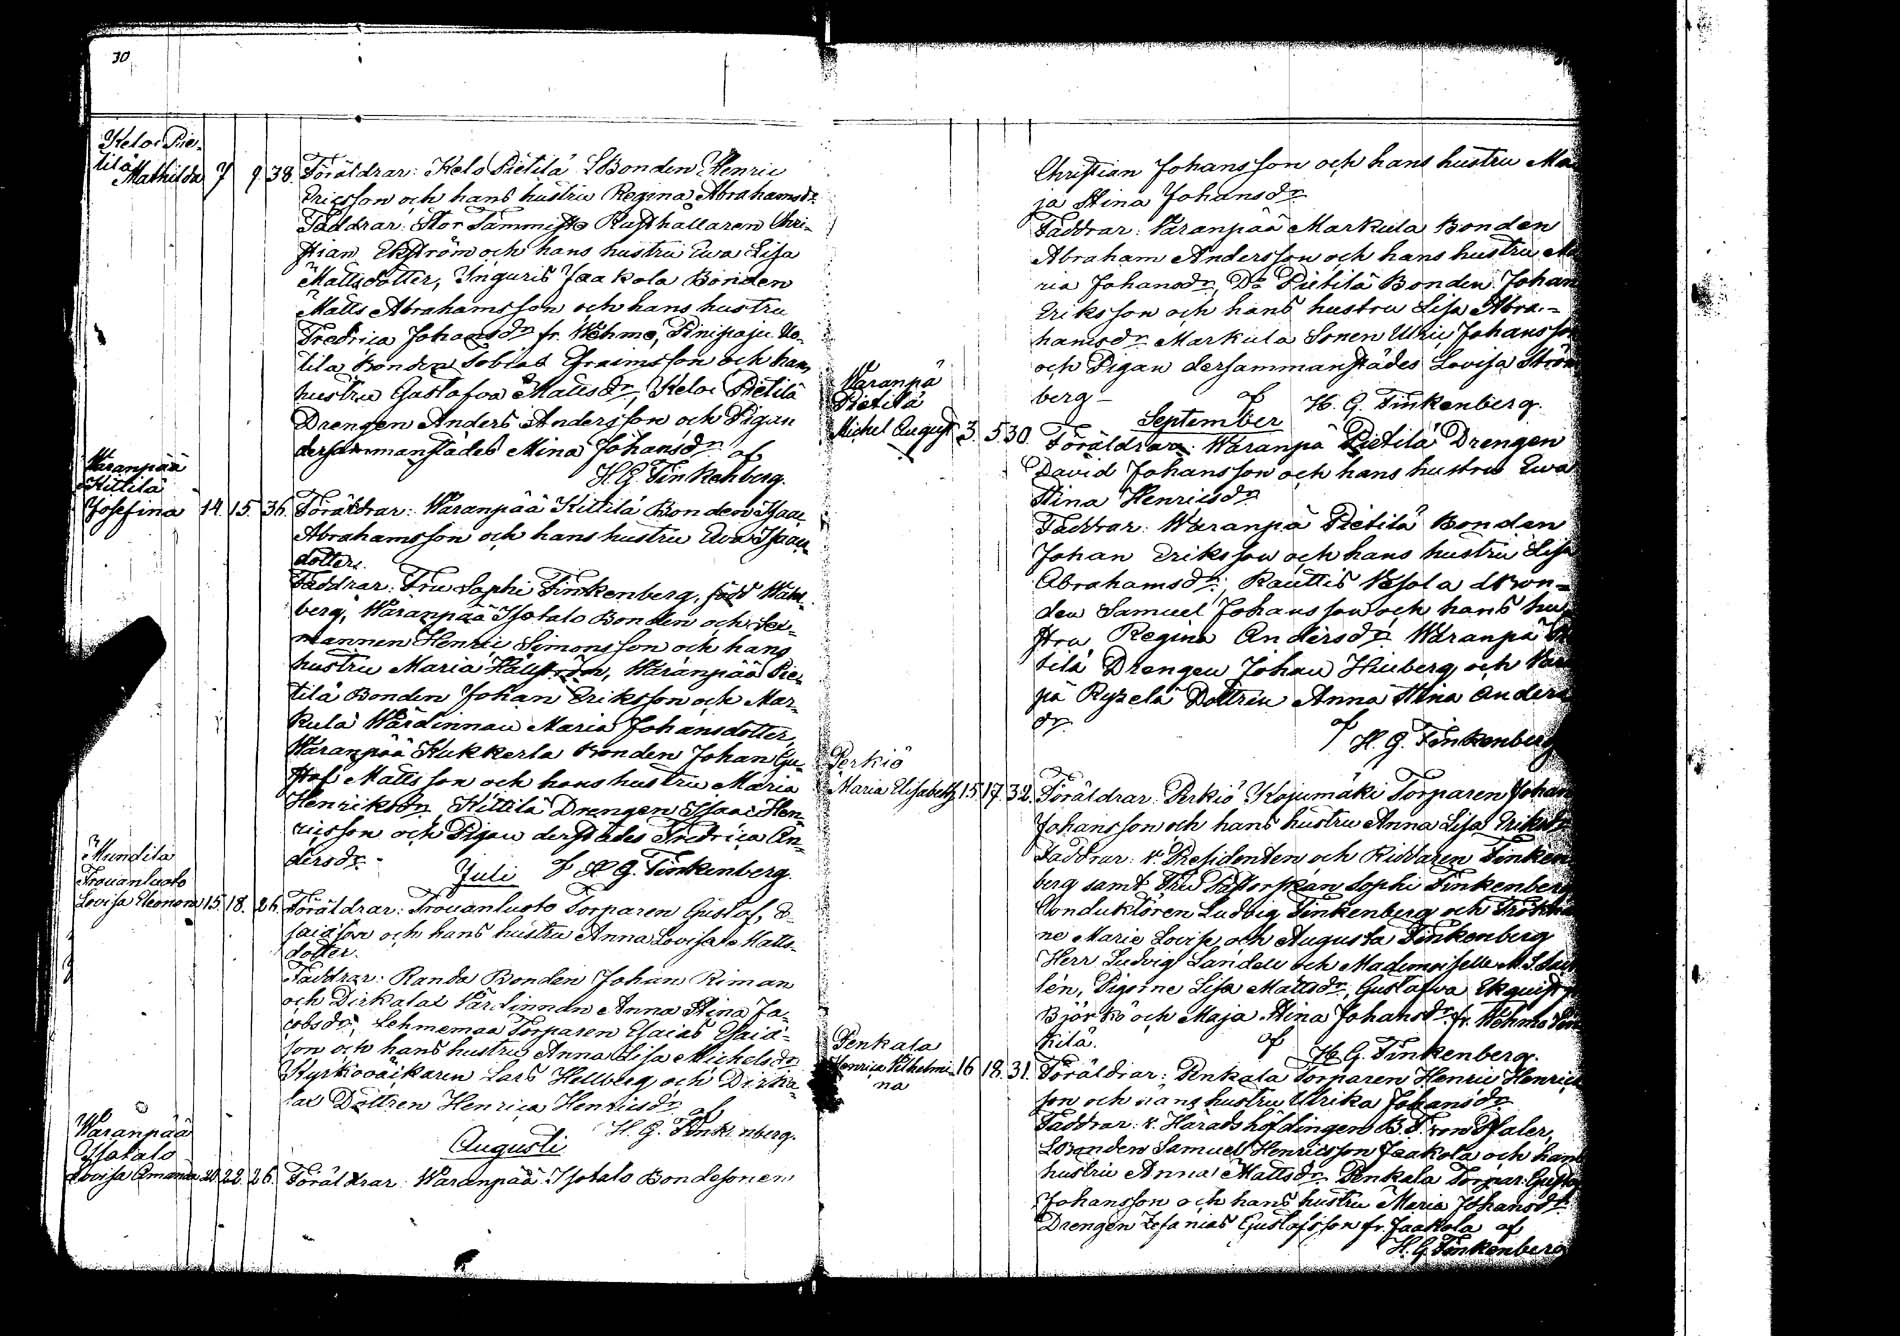 30
Keloi Pie-
tilä
Mathilda 7 9 38. Föräldrar: Kelo Pietilä LBonden Henric
Ericsson och hans hustru Regina Abrahamsdr
Faddrar: Stor Tammisto Rusthållaren Chri-
stian Ekström och hans hustru Ewa Lisa
Mattsdotter, Inguris Jaakola Bonden
Matts Abrahamsson och hans hustru
Fredrica Johansdr fr. Wehmo, Pinipaju Uo-
tila Bonden Tobias Efraimsson och hans
hustru Gustafva Mattsdr, Keloi Pietilä
Drengen Anders Andersson och Pigan
dersammanstädes Mina Johansdr af
H. G. Finkenberg.
Waranpää
Kittilä
Josefina 14. 15. 36. Föräldrar: Waranpää Kittilä Bonden Isaac
Abrahamsson och hans hustru Eva Isaacs-
dotter.
Faddrar: Fru Sophi Finkenberg, född Wahl-
berg, Waranpää Isotalo Bonden och Sex-
mannen Henric Simonsson och hans
hustru Maria Hällström, Waranpää Pie-
tilä Bonden Johan Eriksson och Mar-
kula Wärdinnan Maria Johansdotter,
Waranpää Kukkerla Bonden Johan Gu-
staf Mattsson och hans hustru Maria
Henriksdr, Kittilä Drengen Isaac Hen-
ricsson och Pigan derstädes Fredrica An-
dersdr. Juli af H. G. Finkenberg.
Mundila
Trouanluoto
Lovisa Eleonora 15. 18. 26. Föräldrar: Trouanluoto Torparen Gustaf, E-
saiasson och hans hustru Anna Lovisa Matts-
dotter.
Faddrar: Randa Bonden Johan Riman
och Dirkalax Värdinnan Anna Stina Ja-
cobsdr, Lehmemaa Torparen Esaias Esaia-
son och hans hustru Anna Lisa Michelsdr
Kyrkovaikaren Lars Hellberg och Dirka-
lax Dottren Henrica Henricsdr af
H. G. Finkenberg.
Augusti
Waranpää
Isotalo
Lovisa Amanda 20. 22. 26. Föräldrar: Waranpää Isotalo Bondesonen
Christian Johansson och hans hustru Ma
ja Stina Johansdr
Faddrar: Waranpää Markula Bonden
Abraham Andersson och hans hustru Ma
ria Johansdr, Do Pietilä Bonden Johan
Eriksson och hans hustru Lisa Abra-
hamsdr Markula Sonen Ulric Johansson
och Pigan dersammanstädes Lovisa Ström
berg - af H. G. Finkenberg.
September
Waranpä
Pietilä
Michel August 3. 5. 30. Föräldrar: Waranpä Pietilä Drengen
David Johansson och hans hustru Ewa
Stina Henricsdr
Faddrar: Waranpä Pietilä Bonden
Johan Eriksson och hans hustru Lisa
Abrahamsdr; Rauttis Wesola LBon-
den Samuel Johansson och hans hu-
stru Regina Andersdr Waranpä
tilä Drengen Johan Hieberg och Waran
pä Ryzelä Dottren Anna Stina Anders
dr
af H. G. Finkenberg
Perkiö
Maria Elisabeth 15. 17. 32. Föräldrar: Perkiö Kojumäki Torparen Johan
Johansson och hans hustru Anna Lisa Eriksdr
Faddrar: v. Presidenten och Riddaren Finken-
berg samt Fru Pastorskan Sophi Finkenberg
Conduktören Ludvig Finkenberg och Frökna
ne Marie Lovise och Augusta Finkenberg
Herr Ludvig Landell och Mademoiselle M. S.
lén, Pigorne Lisa Mattsdr, Gustafva Ekquist
Björkö och Maja Stina Johansdr fr. Wehmo
kilä. af H. G. Finkenberg.
Penkala
Henrica Wilhelmi- 16 18. 31. Föräldrar: Penkala Torparen Henric Henrics
na
son och hans hustru Ulrika Johansdr
Faddrar: v. Häradshöfdingen B. F. von Pfaler,
LBonden Samuel Henricsson Jaakola och hans
hustru Anna Mattsdr Penkala Torpar: Gustaf
Johansson och hans hustru Maria Johansdr
Drengen Zefanias Gustafsson fr. Jaakola af
H. G. Finkenberg